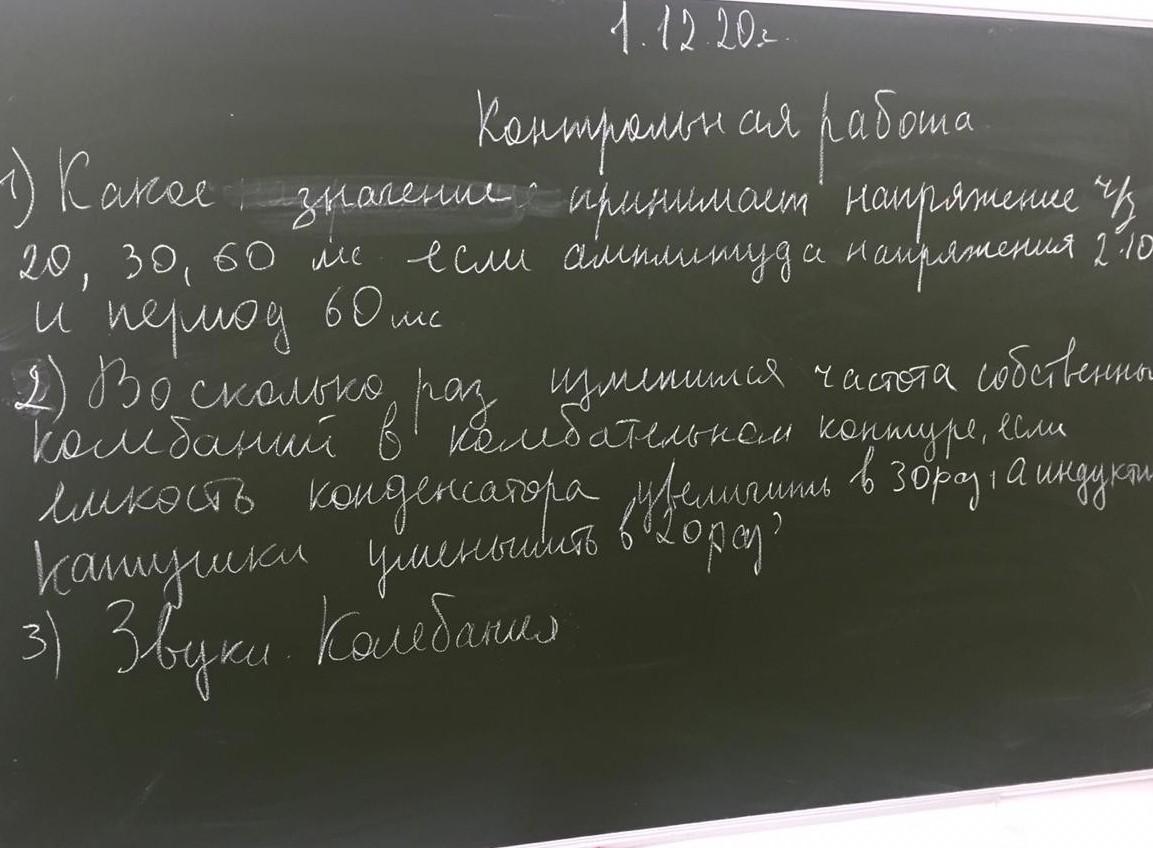 1.12.20г.
Контрольная работа
1) Какое значение принимает напряжение ч/з
20, 30, 60 мс если амплитуда напряжения 2·10
и период 60 мс
2) Во сколько раз изменится частота собственны
колебаний в колебательном контуре, если
емкость конденсатора увеличить в 30 раз, а индукти
катушки уменьшить в 20 раз?
3) Звуки. Колебания